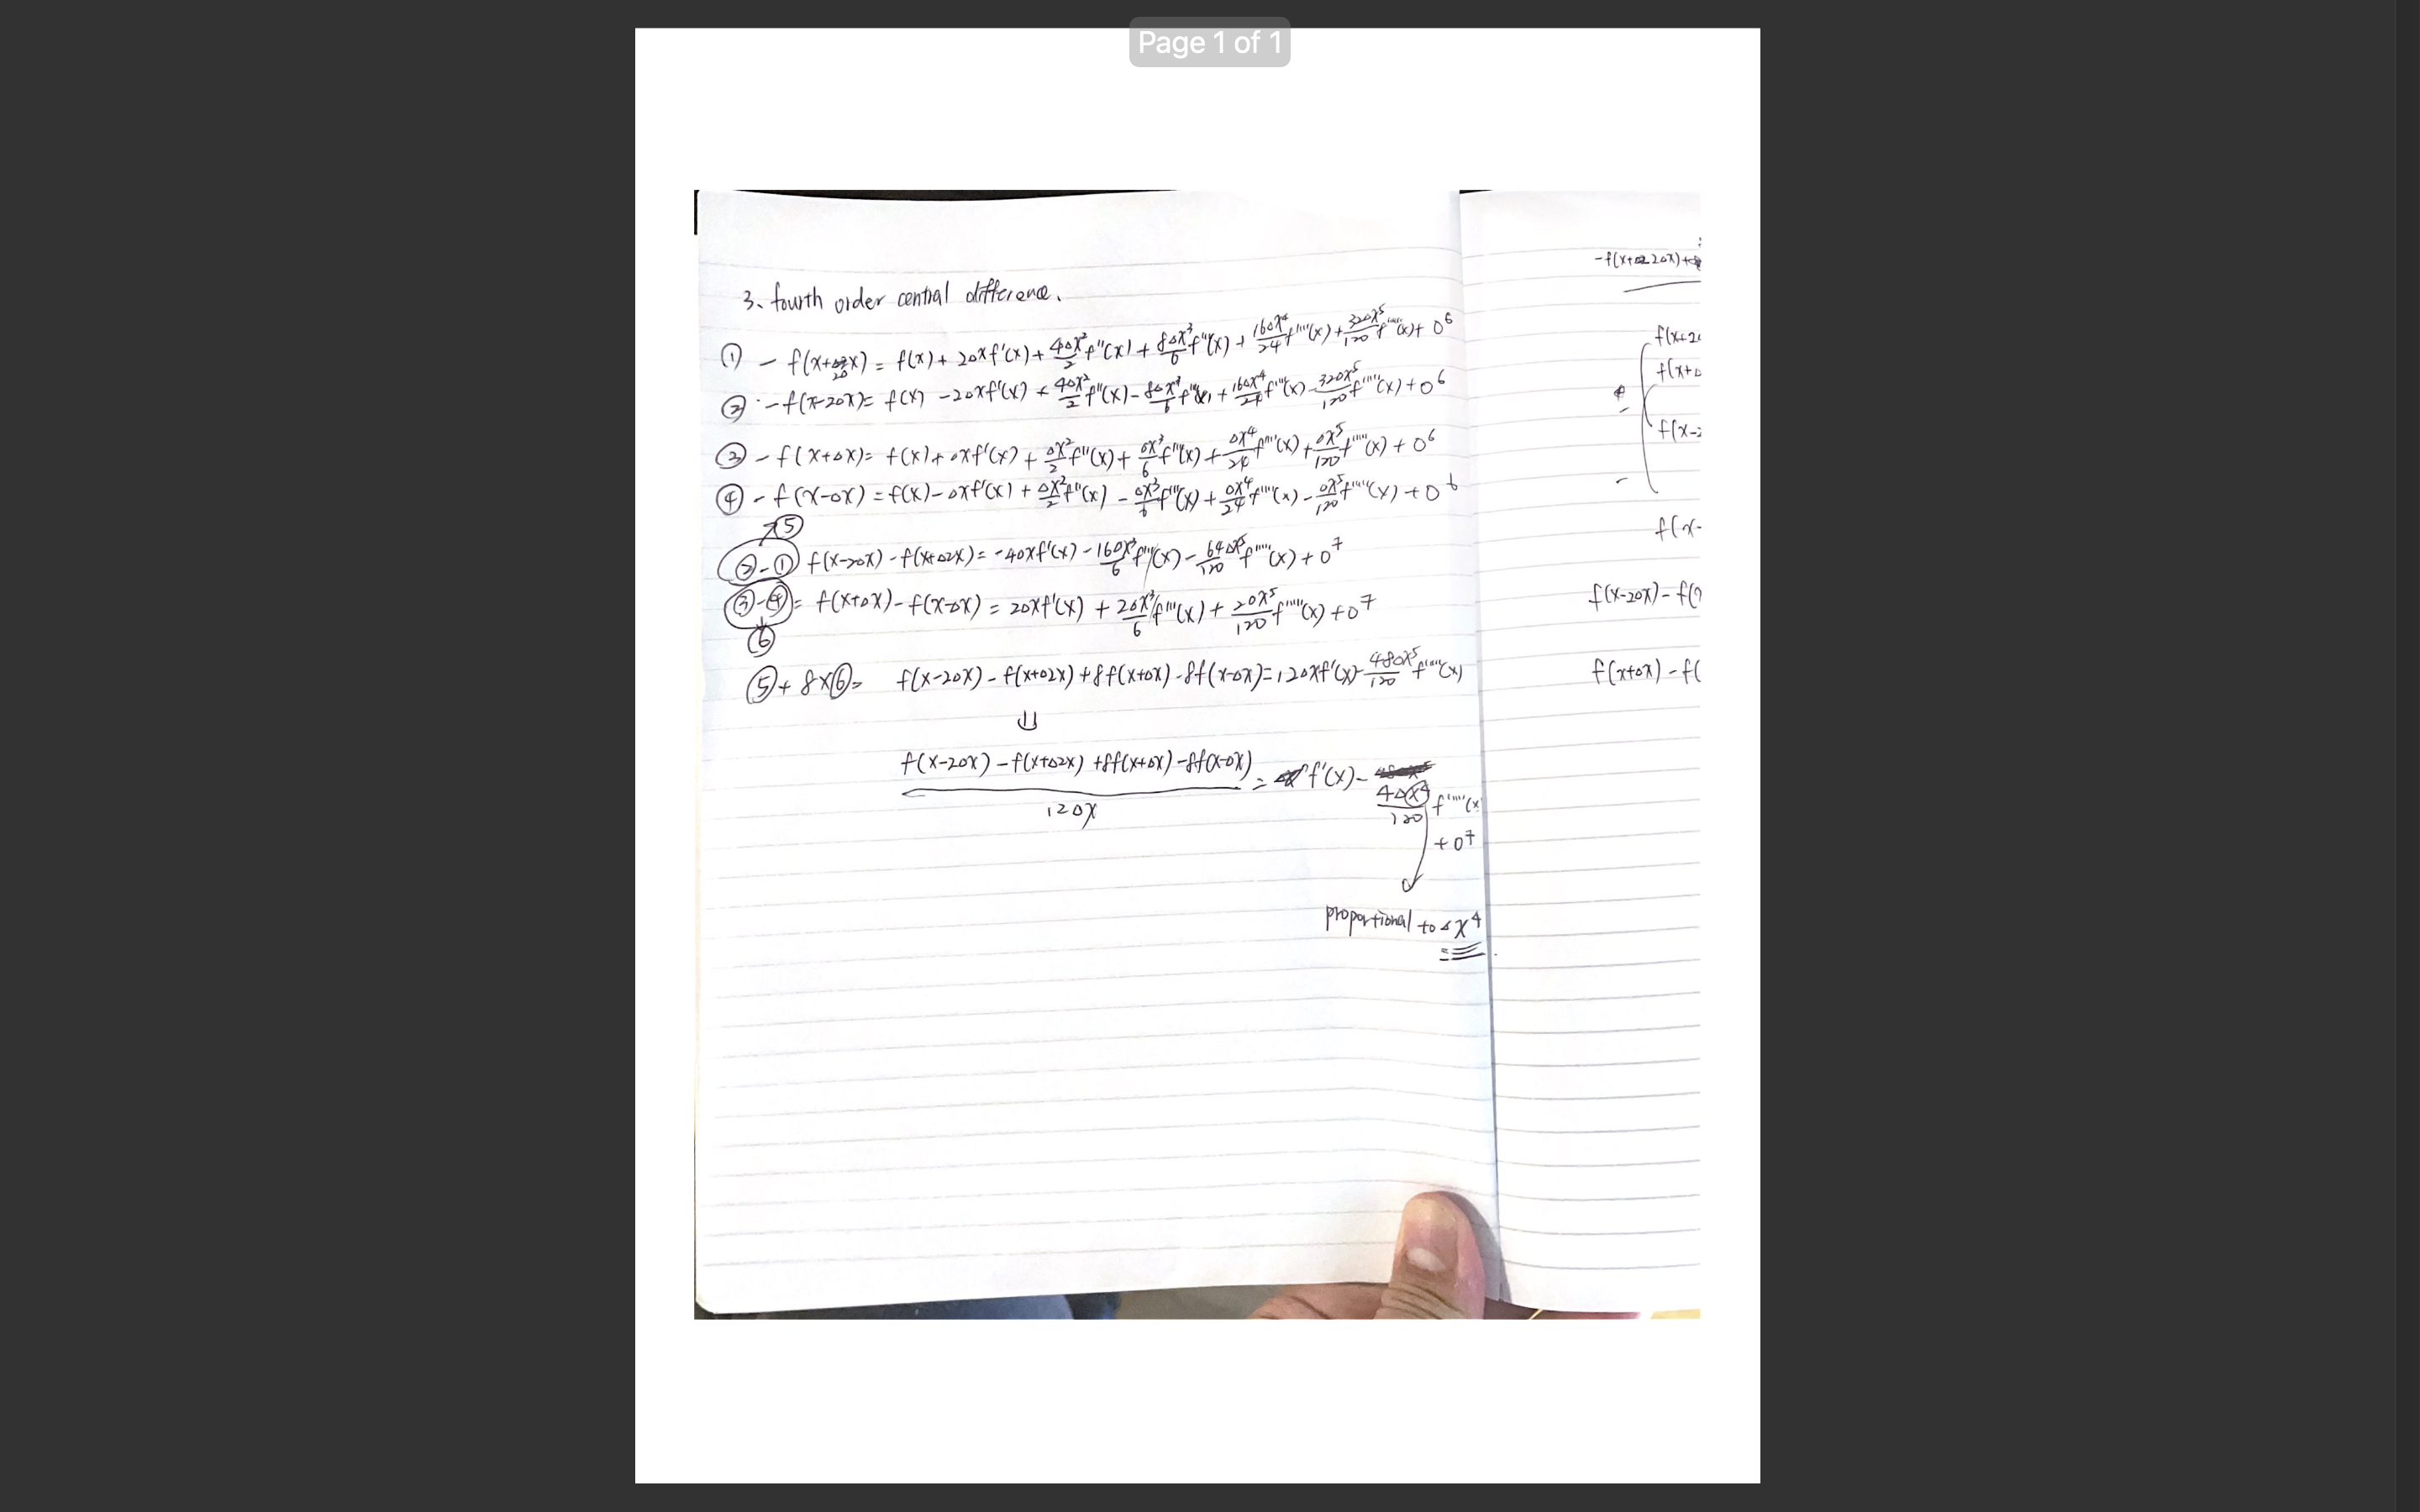 Page 1 of 1
3. fourth order central difference.
① - f(x+2Δx) = f(x) + 2Δx f'(x) + 4Δx²/2 f''(x) + 8Δx³/6 f'''(x) + 16Δx⁴/24 f''''(x) + 32Δx⁵/120 f'''''(x) + 0⁶
② - f(x-2Δx) = f(x) - 2Δx f'(x) + 4Δx²/2 f''(x) - 8Δx³/6 f'''(x) + 16Δx⁴/24 f''''(x) - 32Δx⁵/120 f'''''(x) + 0⁶
③ - f(x+Δx) = f(x) + Δx f'(x) + Δx²/2 f''(x) + Δx³/6 f'''(x) + Δx⁴/24 f''''(x) + Δx⁵/120 f'''''(x) + 0⁶
④ - f(x-Δx) = f(x) - Δx f'(x) + Δx²/2 f''(x) - Δx³/6 f'''(x) + Δx⁴/24 f''''(x) - Δx⁵/120 f'''''(x) + 0⁶
⑤
②-① f(x-2Δx) - f(x+Δ2x) = -4Δx f'(x) - 16Δx³/6 f'''(x) - 64Δx⁵/120 f'''''(x) + 0⁷
③-④ = f(x+Δx) - f(x-Δx) = 2Δx f'(x) + 2Δx³/6 f'''(x) + 2Δx⁵/120 f'''''(x) + 0⁷
⑥
⑤ + 8×⑥ = f(x-2Δx) - f(x+Δ2x) + 8f(x+Δx) - 8f(x-Δx) = 12Δx f'(x) - 48Δx⁵/120 f'''''(x)
⇓
f(x-2Δx) - f(x+Δ2x) + 8f(x+Δx) - 8f(x-Δx) / 12Δx = f'(x) - 4Δx⁴/120 f'''''(x
+ 0⁷
proportional to Δx⁴
-f(x+2Δx)+
f(x+2
f(x+Δ
f(x-2
f(x-
f(x-2Δx) - f(
f(x+Δx) - f(